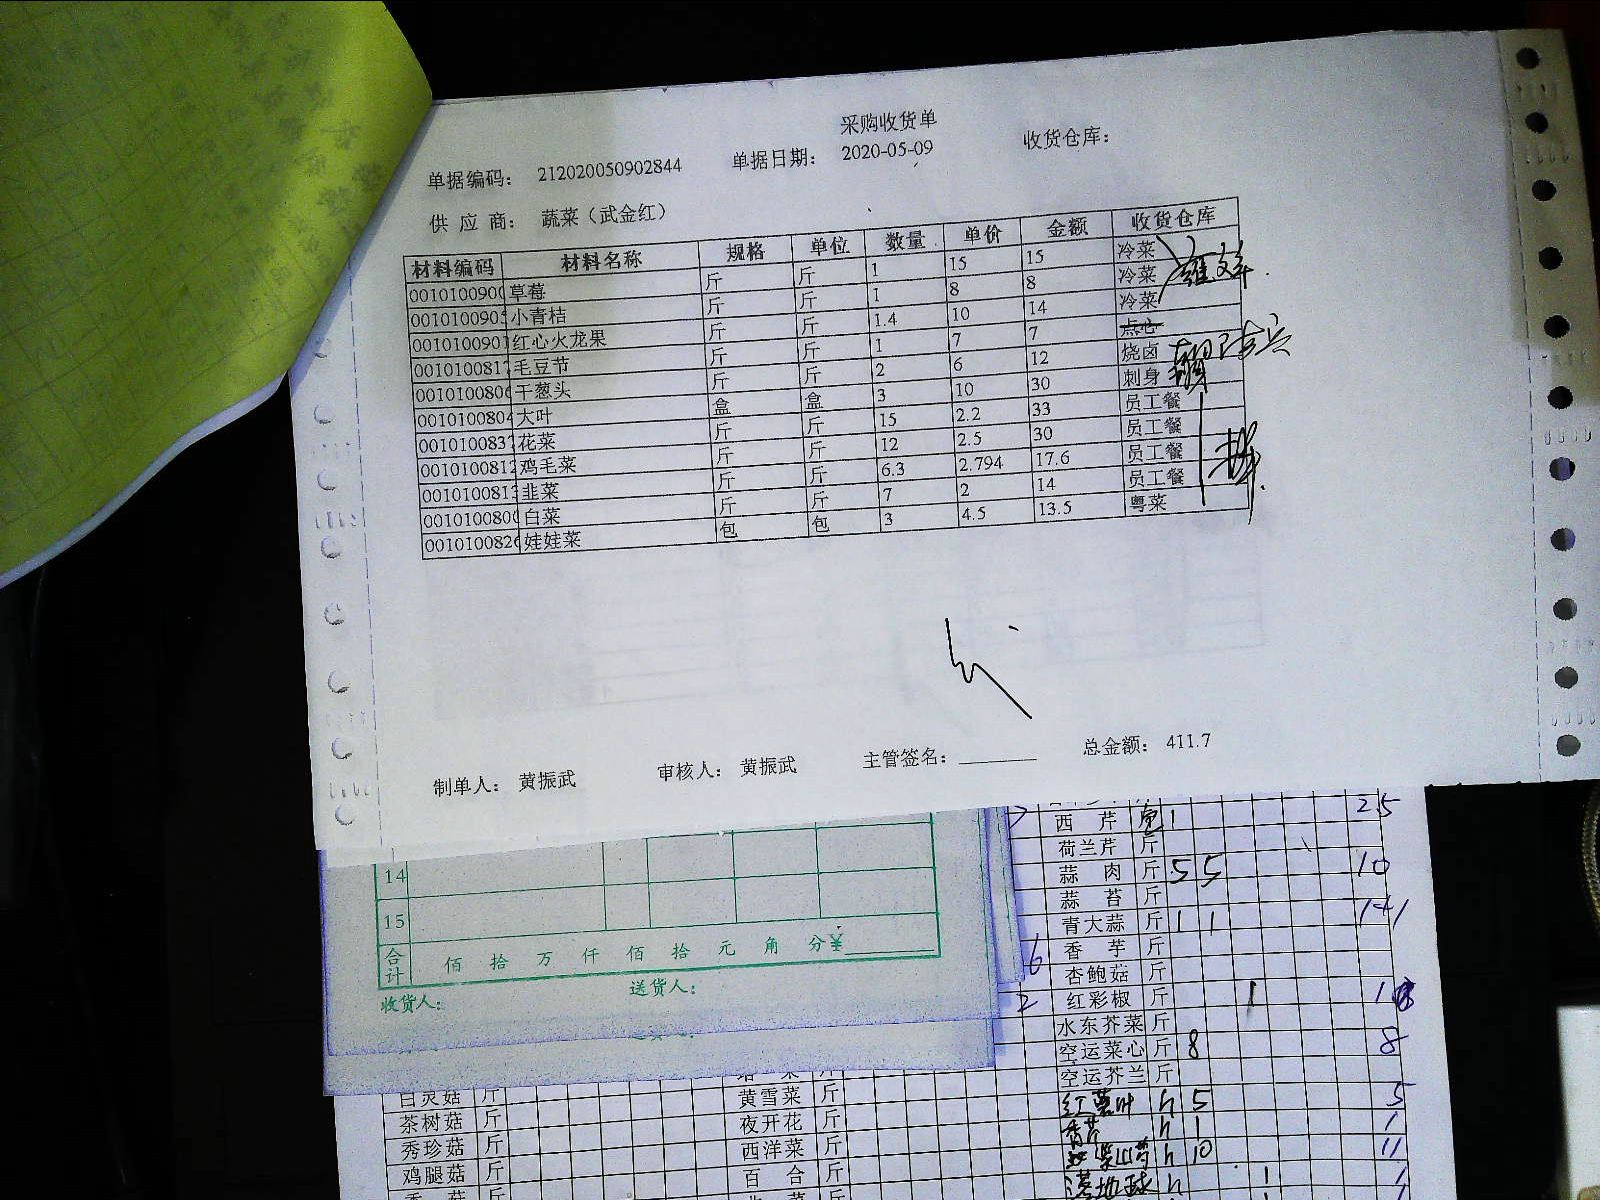 采购收货单
单据编码： 212020050902844 单据日期： 2020-05-09 收货仓库：
供 应 商： 蔬菜（武金红）
材料编码 材料名称 规格 单位 数量 单价 金额 收货仓库
001010090 草莓 斤 斤 1 15 15 冷菜
001010090 小青桔 斤 斤 1 8 8 冷菜
001010090 红心火龙果 斤 斤 1.4 10 14 冷菜
001010081 毛豆节 斤 斤 1 7 7 点心
001010080 干葱头 斤 斤 2 6 12 烧卤
001010080 大叶 盒 盒 3 10 30 刺身
001010083 花菜 斤 斤 15 2.2 33 员工餐
001010081 鸡毛菜 斤 斤 12 2.5 30 员工餐
001010081 韭菜 斤 斤 6.3 2.794 17.6 员工餐
001010080 白菜 斤 斤 7 2 14 员工餐
001010082 娃娃菜 包 包 3 4.5 13.5 粤菜
制单人： 黄振武 审核人： 黄振武 主管签名： 总金额： 411.7
14
15
合计 佰 拾 万 仟 佰 拾 元 角 分￥
收货人： 送货人：
西 芹 1 25
荷兰芹 斤
蒜 肉 斤 5 5 10
蒜 苔 斤
青大蒜 斤 1 1 1+1
6 香 芋 斤
杏鲍菇 斤
2 红彩椒 斤 1
水东芥菜 斤
空运菜心 斤 8 8
空运芥兰 斤
红薯叶 5 5
香芹 1 1
10 11
白灵菇 斤 黄雪菜 斤
茶树菇 斤 夜开花 斤
秀珍菇 斤 西洋菜 斤
鸡腿菇 斤 百 合 斤